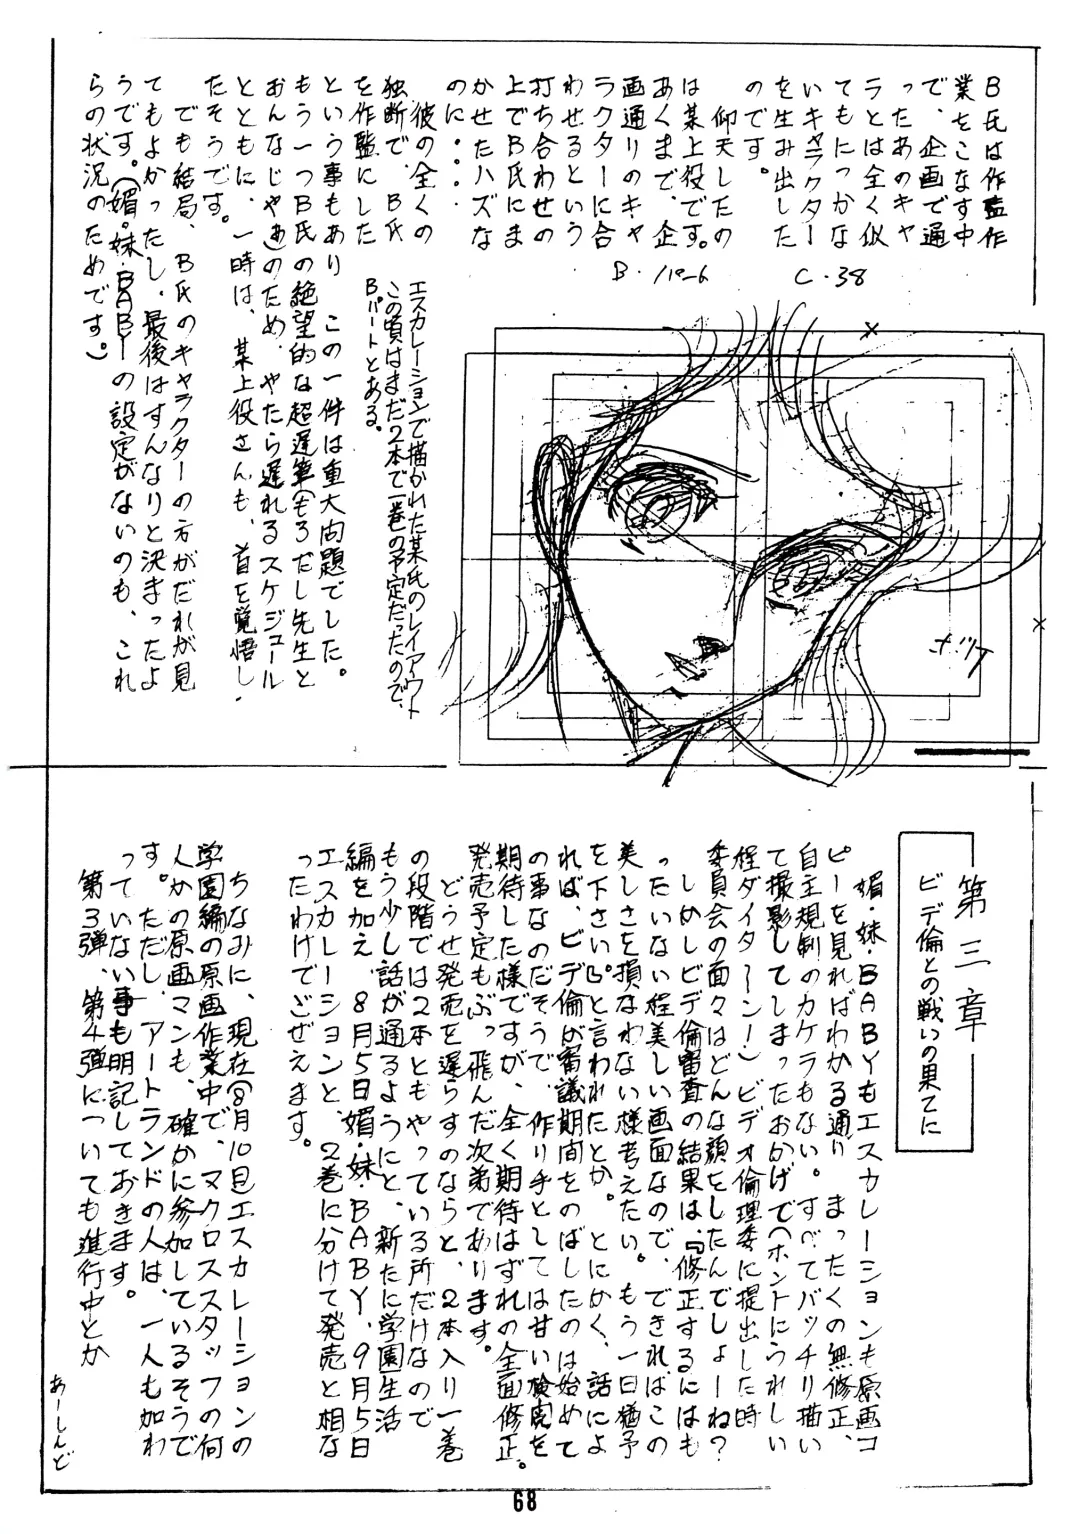 B氏は作監作
業をこなす中
で、企画で通
ったあのキャ
ラとは全く似
てもにつかな
いキャラクター
を生み出した
のです。
仰天したの
は某上役です。
あくまで、企
画通りのキャ
ラクターに合
わせるという
打ち合わせの
上でB氏にま
かせたハズな
のに・・・・
彼の全くの
独断で、B氏
を作監にした
という事もあり この一件は重大問題でした。
もう一つB氏の絶望的な超遅筆(もろだし先生と
おんなじやぁ)のため、やたら遅れるスケジュール
とともに、一時は、某上役さんも、首を覚悟し・
たそうです。
でも結局、B氏のキャラクターの方がだれが見
てもよかったし、最後はすんなりと決まったよ
うです。(媚・妹・BABYの設定がないのも、これ
らの状況のためです。)
C・38
B・
エスカレーションで描かれた某氏のレイアウト
この頃はまだ2本で一巻の予定だったので、
Bパートとある。
第三章
ビデ倫との戦いの果てに
媚・妹・BABYもエスカレーションも原画コ
ピーを見ればわかる通り まったくの無修正、
自主規制のカケラもない。すべてバッチリ描い
て撮影してしまったおかげで(ホントにうれしい
程ダイターン!)ビデオ倫理委に提出した時
委員会の面々はどんな顔をしたんでしょーね?
しかしビデ倫審査の結果は、『修正するにはも
ったいない程美しい画面なので、できればこの
美しさを損なわない様考えたい。もう一日猶予
を下さい。』と言われたとか。とにかく、話によ
れば、ビデ倫が審議期間をのばしたのは始めて
の事なのだそうで、作り手としては甘い検閲を
期待した様ですが、全く期待はずれの全面修正。
発売予定もぶっ飛んだ次第であります。
どうせ発売を遅らすのならと、2本入り一巻
の段階では2本ともやっている所だけなので
もう少し話が通るようにと、新たに学園生活
編を加え、8月5日媚・妹・BABY、9月5日
エスカレーションと、2巻に分けて発売と相な
ったわけでござえます。
ちなみに、現在(8月10日)エスカレーションの
学園編の原画作業中で、マクロススタッフの何
人かの原画マンも、確かに参加しているそうで
す。ただし、アートランドの人は、一人も加わ
っていない事も明記しておきます。
第3弾、第4弾についても進行中とか
あーしんど
68